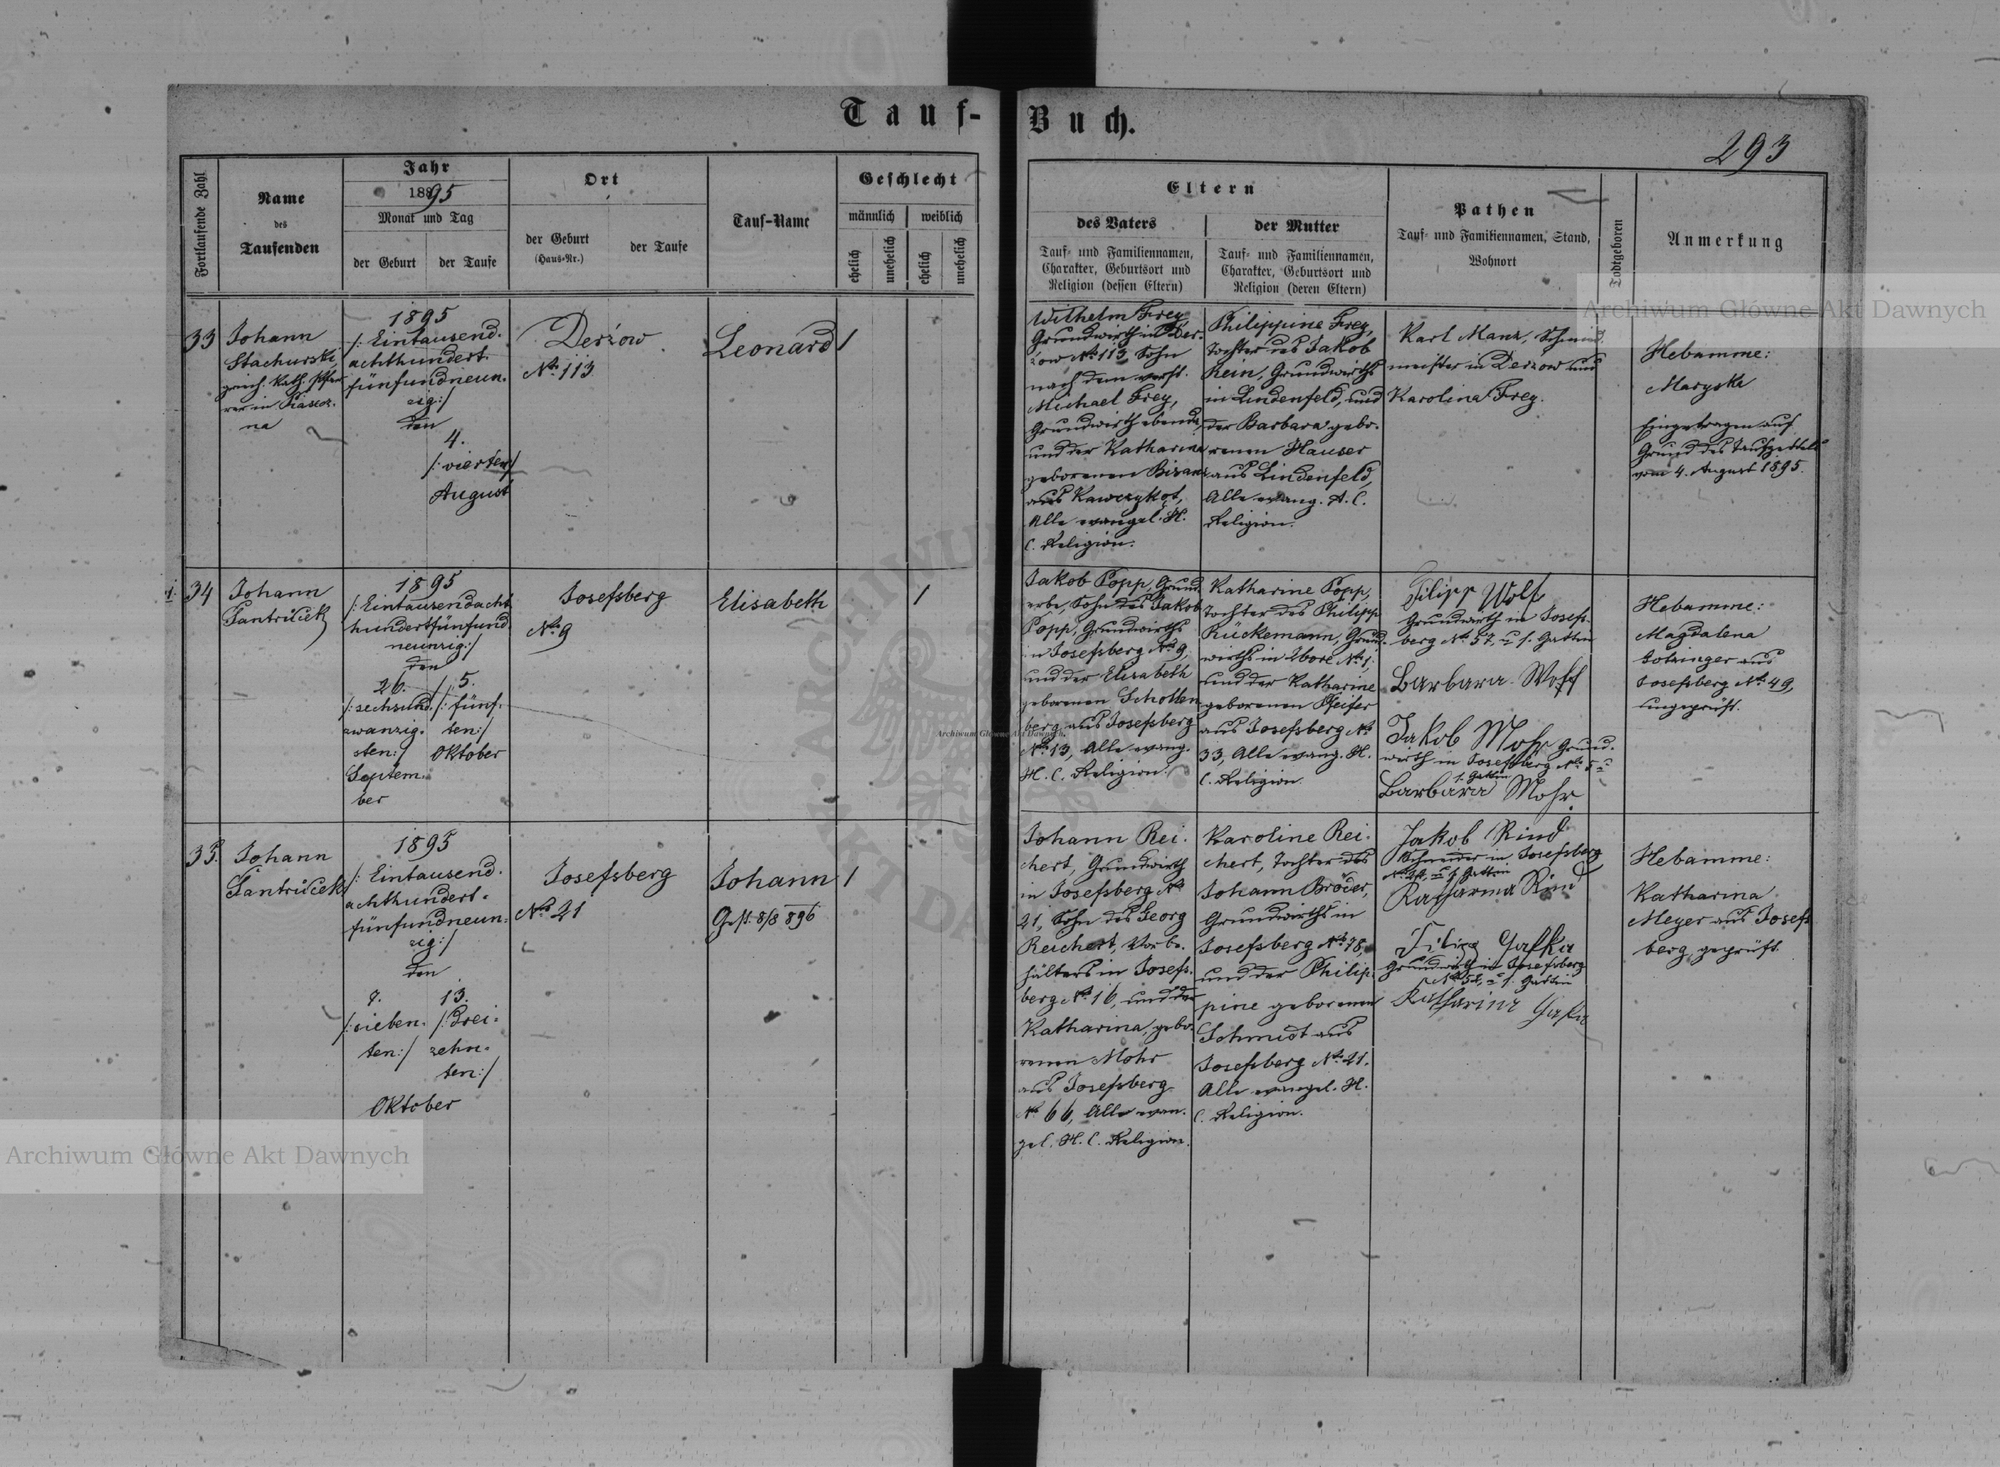 Tauf-Buch.
293
Fortlaufende Zahl
Name
des
Taufenden
Jahr
1895
Monat und Tag
der Geburt
der Taufe
Ort
der Geburt
(Haus-Nr.)
der Taufe
Tauf-Name
Geschlecht
männlich
weiblich
ehelich
unehelich
ehelich
unehelich
Eltern
des Vaters
Tauf- und Familiennamen,
Charakter, Geburtsort und
Religion (dessen Eltern)
der Mutter
Tauf- und Familiennamen,
Charakter, Geburtsort und
Religion (deren Eltern)
Pathen
Tauf- und Familiennamen, Stand,
Wohnort
Todtgeboren
Anmerkung
33
Johann
Stachurski
griech. kath. Pfar-
rer in
na
1895
/: Eintausend-
achthundert-
fünfundneun-
zig:/
den
4.
/: vierten/
August
Deržow
No 113
Leonard
1
Wilhelm Frey
Grundwirth in Der-
zow No 113, Sohn
nach dem verst.
Michael Frey,
Grundwirth ebenda,
und der Katharina
geborenen Bisanz
aus Kawczykąt,
Alle evangel. H.
C. Religion.
Philippine Frey,
Tochter des Jakob
Rein, Grundwirths
in Lindenfeld, und
der Barbara gebo-
renen Hauser
aus Lindenfeld,
Alle evang. A. C.
Religion.
Karl Manz, Schmied-
meister in Derzow und
Karolina Frey.
Hebamme:
Maryska
Eingetragen auf
Grund des Taufzettels
vom 4. August 1895.
34
Johann
Fantriček
1895
/: Eintausendacht
hundertfünfund
neunzig:/
den
26.
/: sechsund-
zwanzig-
sten:/
Septem-
ber
5.
/: fünf-
ten:/
Oktober
Josefsberg
No 9
Elisabeth
1
Jakob Popp, Grund
erbe, Sohn des Jakob
Popp, Grundwirths
in Josefsberg No 9,
und der Elisabeth
geborenen Schotten
berg aus Josefsberg
No 13, Alle evang.
H. C. Religion.
Katharine Popp,
Tochter des Philipp
Rückemann, Grund-
wirths in Ugors No 1,
und der Katharine
geborenen Pfeifer
aus Josefsberg No
33, Alle evang. H.
C. Religion.
Filipp Wolf
Grundwirth in Josefs-
berg No 57, u. s. Gattin
Barbara Wolf
Jakob Mohr Grund-
wirth in Josefsberg No 5 u
s. Gattin
Barbara Mohr
Hebamme:
Magdalena
aus
Josefsberg No 49,
ungeprüft.
35.
Johann
Fantriček
1895
/: Eintausend-
achthundert-
fünfundneun-
zig:/
den
7.
/: sieben-
ten:/
13.
/: Drei-
zehn-
ten:/
Oktober
Josefsberg
No 21
Johann
Gest. 8/8 896
1
Johann Rei-
chert, Grundwirth
in Josefsberg No
21, Sohn des Georg
Reichert, Vorbe-
hälters in Josefs-
berg No 16, und der
Katharina, gebo-
renen Mohr
aus Josefsberg
No 66, Alle evan-
gel. H. C. Religion.
Karoline Rei-
chert, Tochter des
Johann Bröder,
Grundwirths in
Josefsberg No 78,
und der Philip-
pine geborenen
Schmidt aus
Josefsberg No 21.
Alle evangel. H.
C. Religion.
Jakob Rind
Schneider in Josefsberg
u s. Gattin
Katharina Rind
Filipp Gafka
Grundwirth in Josefsberg
No 52, u s. Gattin
Katharina Gafka
Hebamme:
Katharina
Meyer aus Josefs
berg, geprüft.
Archiwum Główne Akt Dawnych
Archiwum Główne Akt Dawnych
Archiwum Główne Akt Dawnych